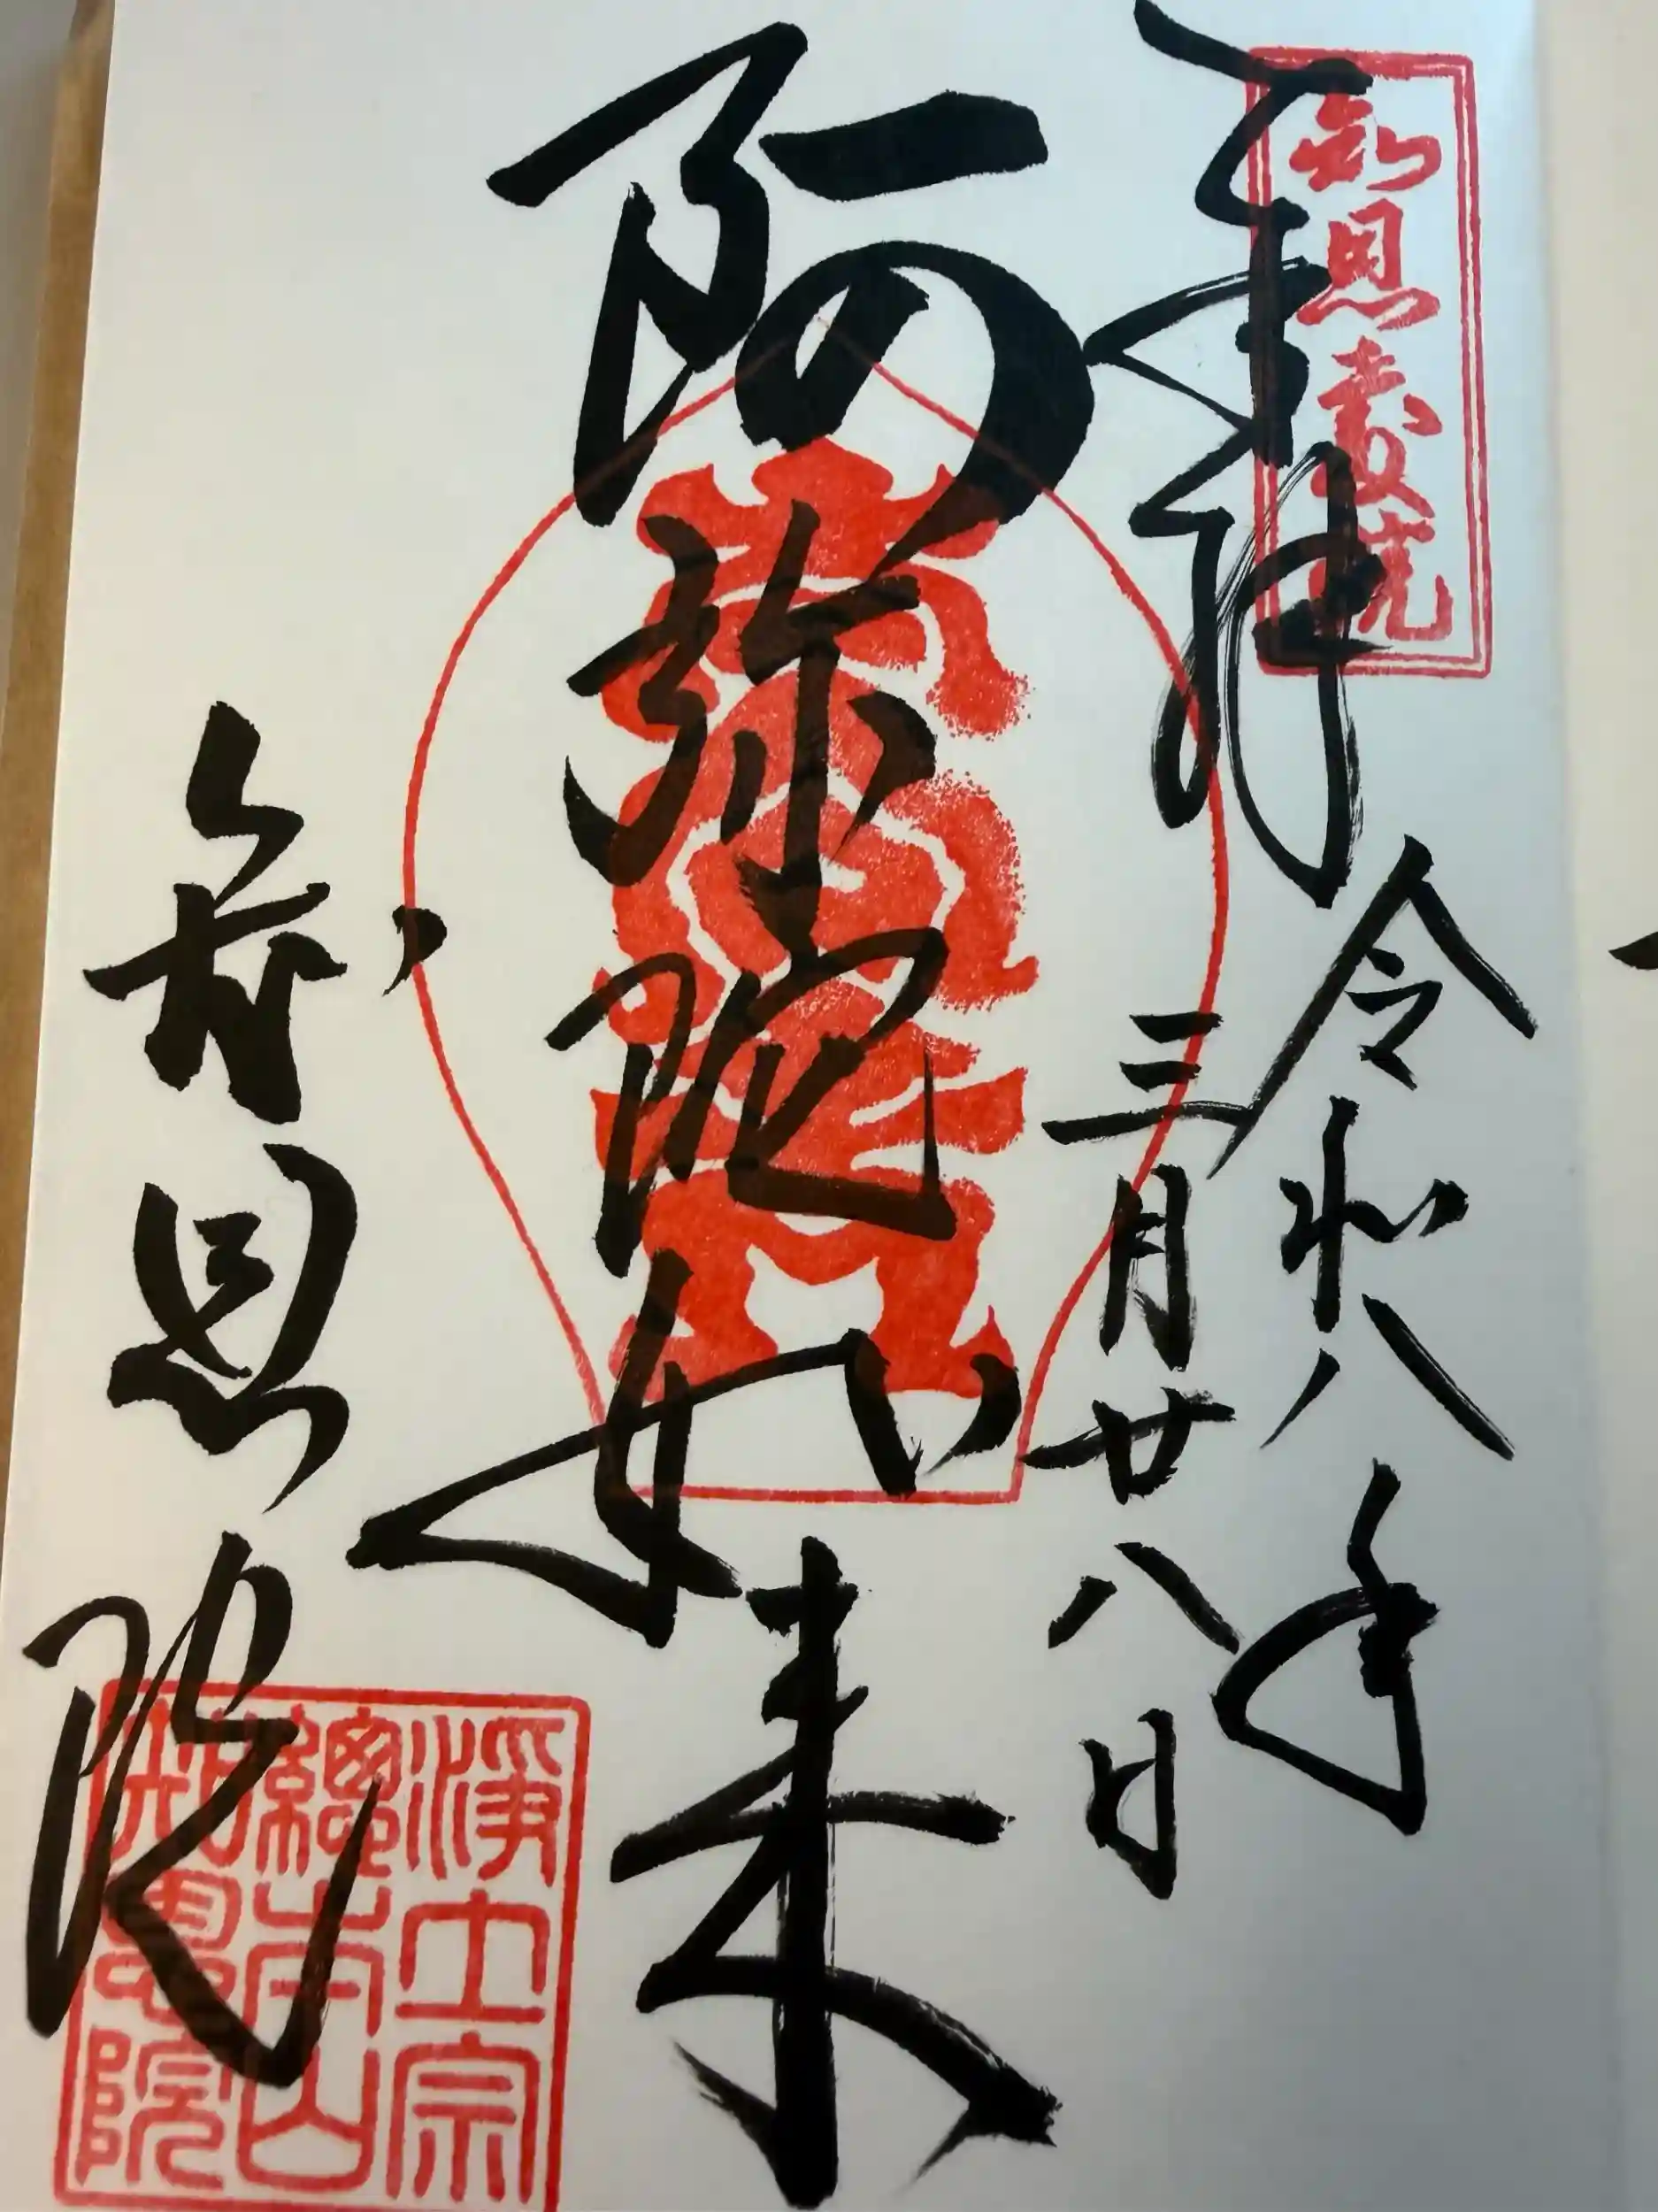 知恩報恩
奉拝
令和八年
三月廿八日
阿弥陀如来
知恩院
淨土宗
總本山
知恩院